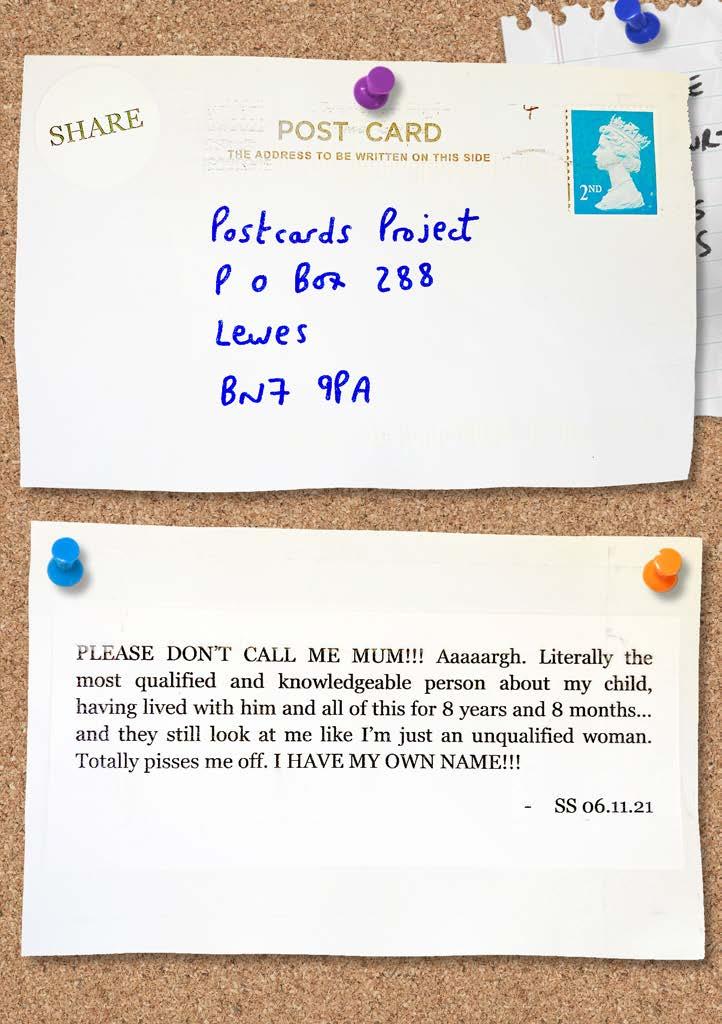 SHARE
POST CARD
THE ADDRESS TO BE WRITTEN ON THIS SIDE
2ND
Postcards Project
P O Box 288
Lewes
BN7 9PA
PLEASE DON'T CALL ME MUM!!! Aaaaargh. Literally the
most qualified and knowledgeable person about my child,
having lived with him and all of this for 8 years and 8 months...
and they still look at me like I'm just an unqualified woman.
Totally pisses me off. I HAVE MY OWN NAME!!!
- SS 06.11.21